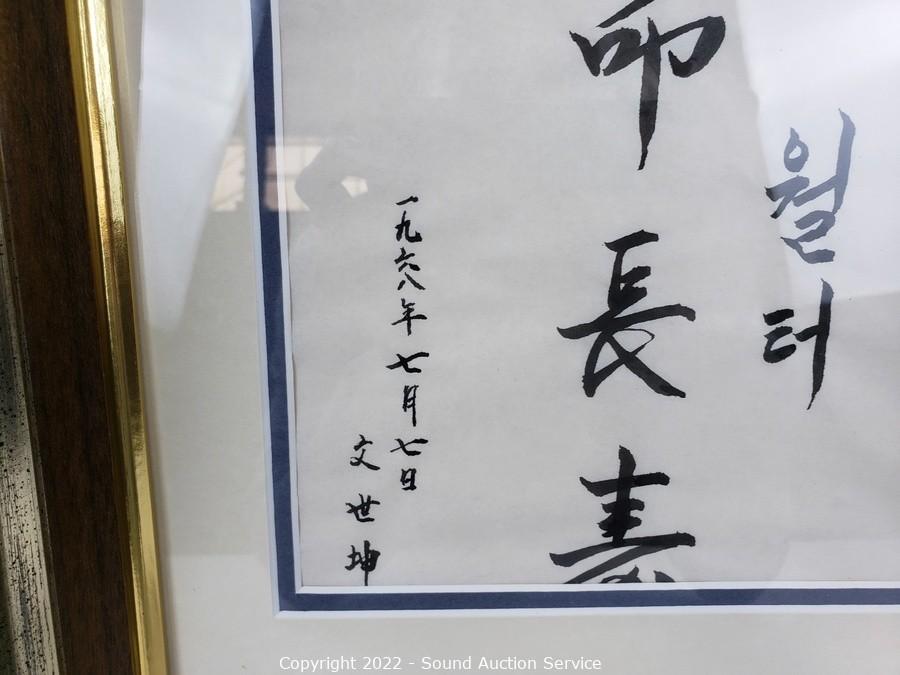 월터
命長壽
一九六八年 七月七日
文世坤
Copyright 2022 - Sound Auction Service